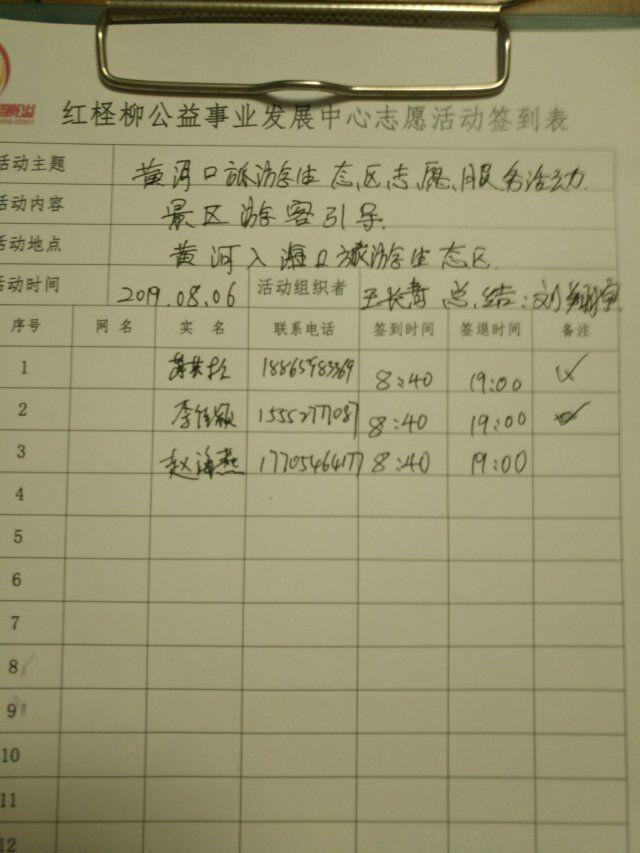 红柽柳公益事业发展中心志愿活动签到表
活动主题 黄河口旅游生态区志愿服务活动
活动内容 景区游客引导
活动地点 黄河入海口旅游生态区
活动时间 2019.08.06 活动组织者 王长青 总结:刘
序号 网名 实名 联系电话 签到时间 签退时间 备注
1 8:40 19:00 ✓
2 李佳颖 15552777087 8:40 19:00 ✓
3 赵海燕 17705464177 8:40 19:00
4
5
6
7
8
9
10
11
12